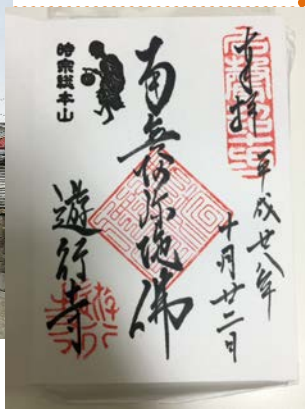 奉拝
平成廿八年
十月廿二日
南無阿弥陀佛
時宗総本山
遊行寺